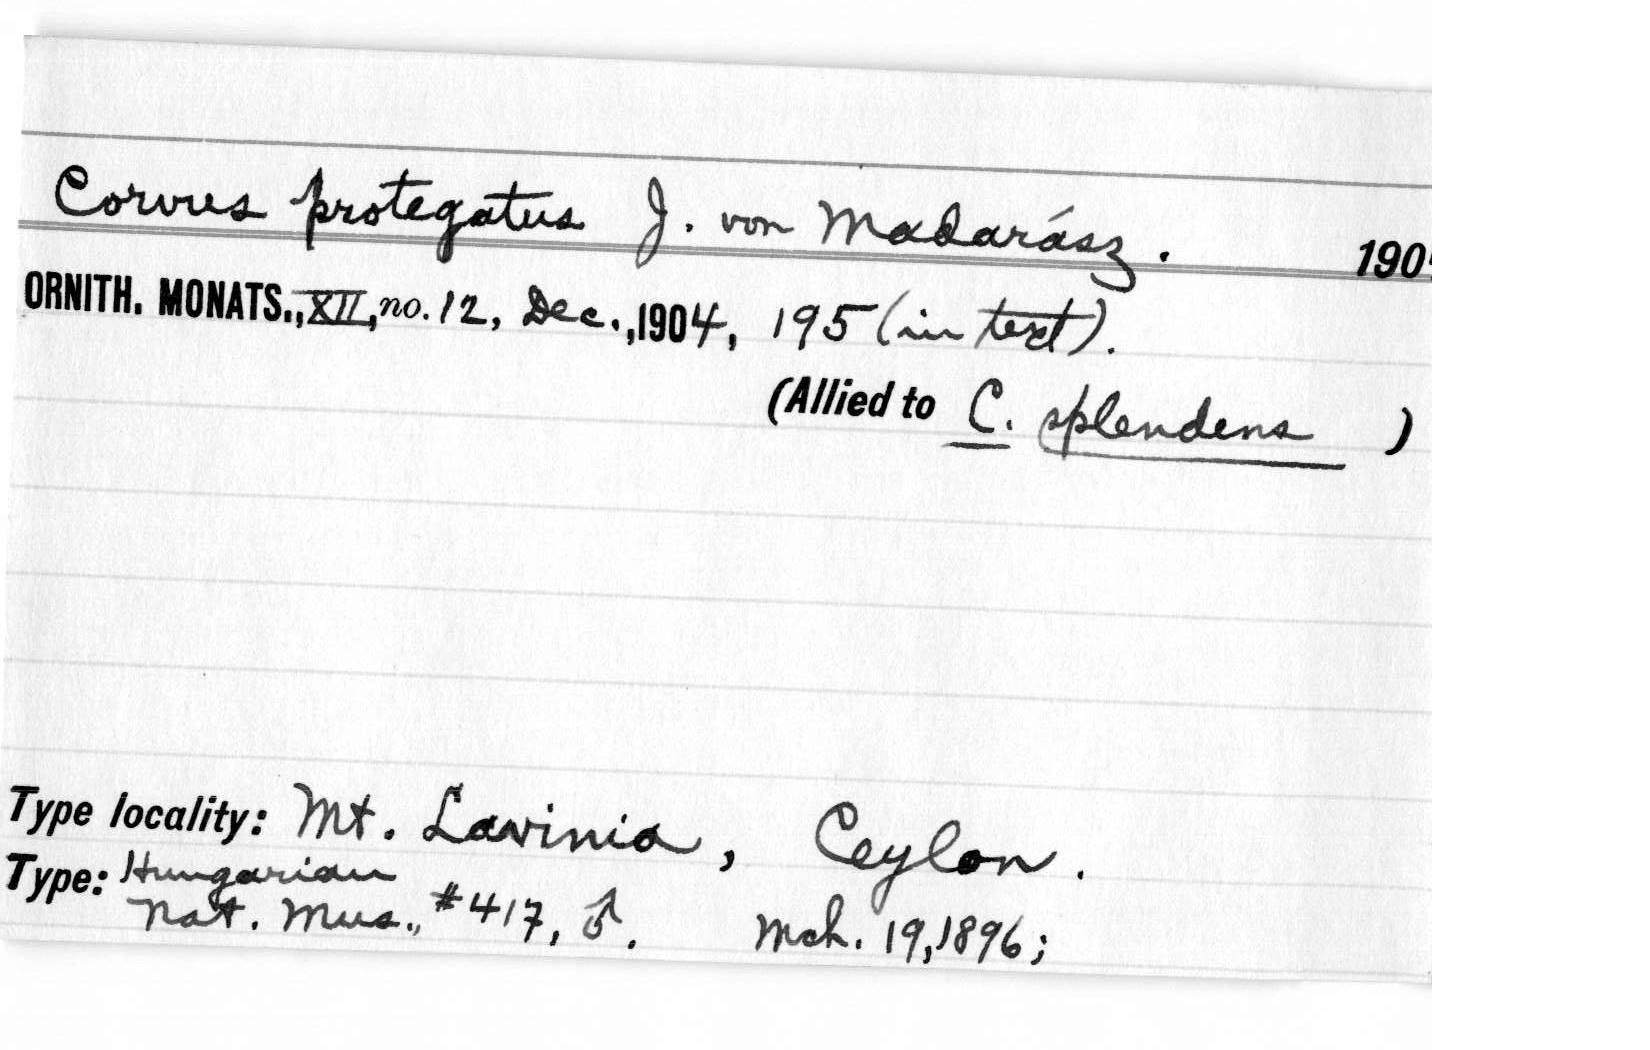 Corvus protegatus J. von Madarász. 190
ORNITH. MONATS., XII, no. 12, Dec., 1904, 195 (in text).
(Allied to C. splendens )
Type locality: Mt. Lavinia, Ceylon.
Type: Hungarian
Nat. Mus., #417, ♂. Mch. 19, 1896;